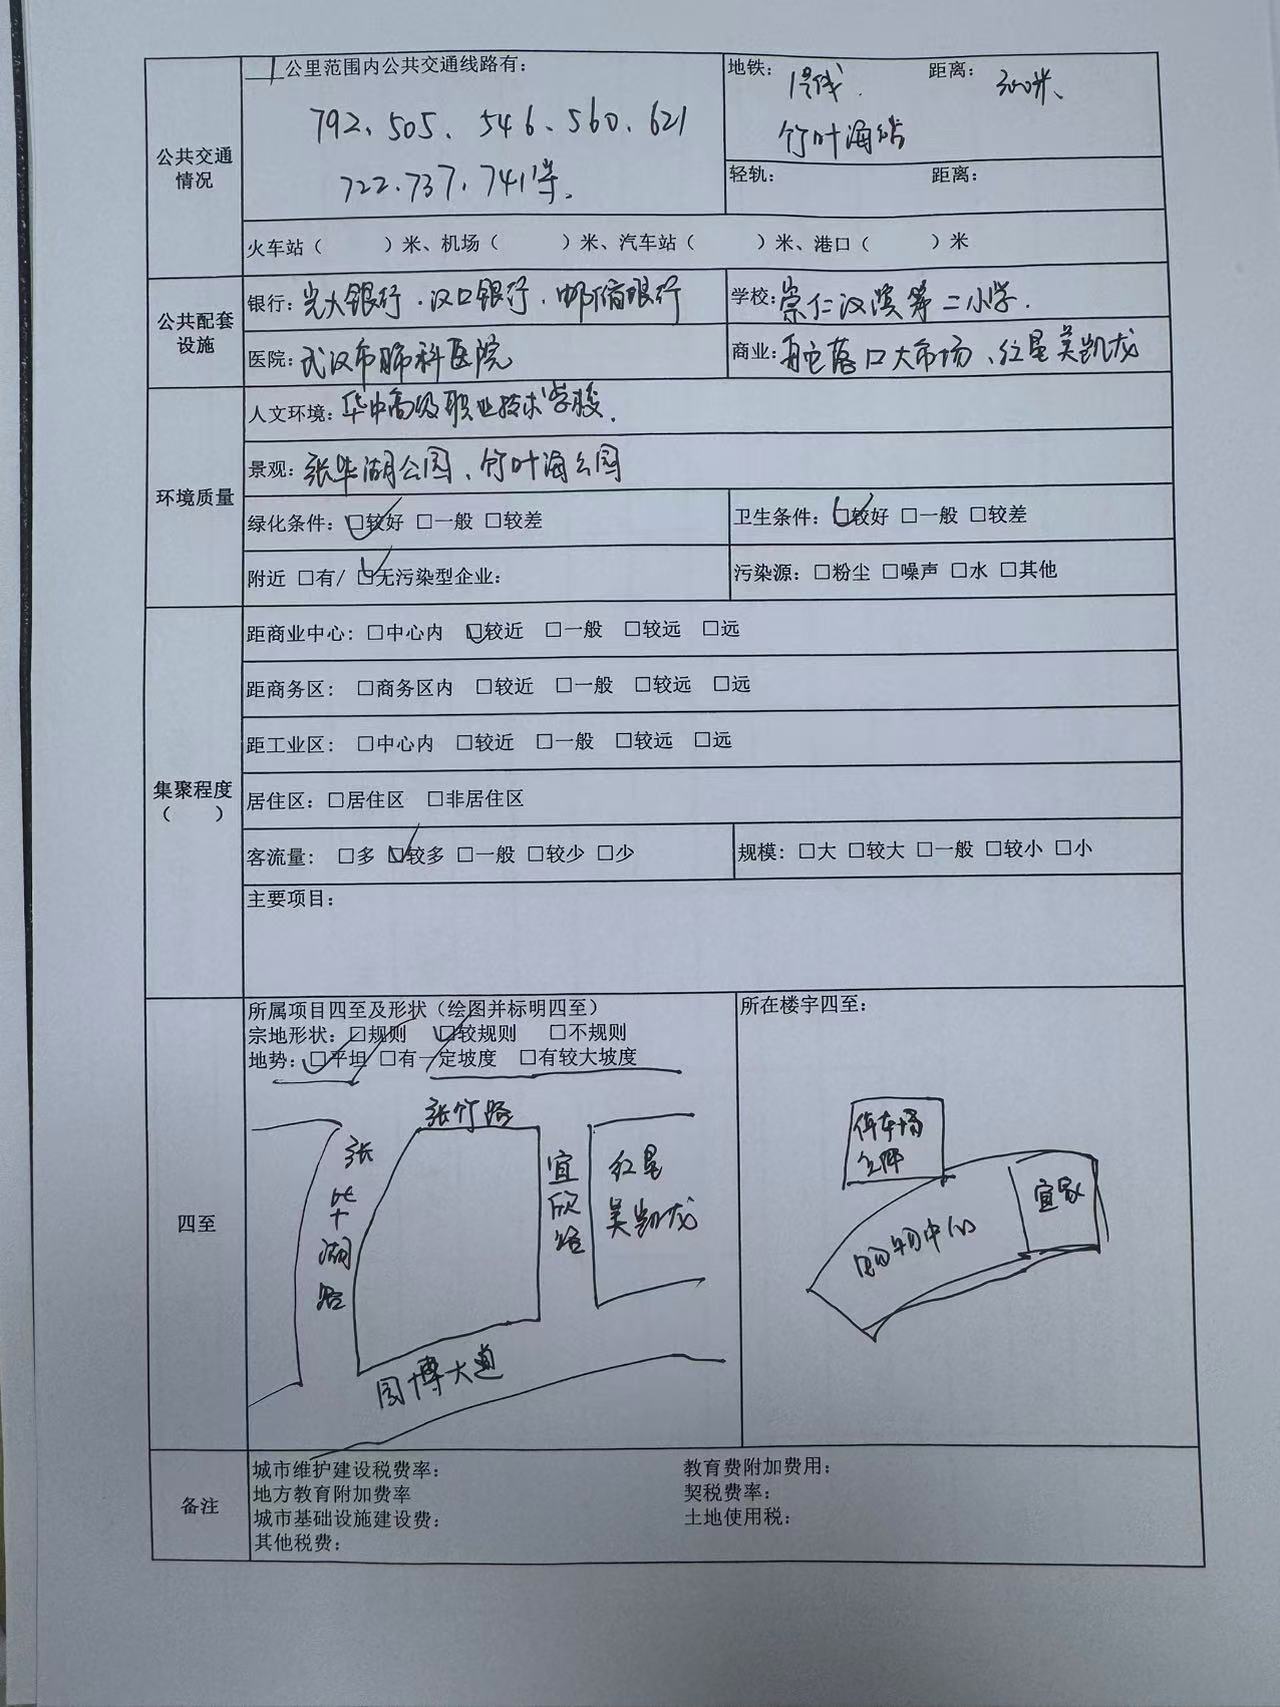 公共交通情况
1公里范围内公共交通线路有：
792、505、546、560、621
722、737、741等。
地铁： 1号线 距离： 300米、
竹叶海站
轻轨： 距离：
火车站（ ）米、机场（ ）米、汽车站（ ）米、港口（ ）米
公共配套设施
银行：光大银行、汉口银行、邮储银行
学校：崇仁汉滨第二小学.
医院：武汉市肺科医院
商业： 落口大市场、红星美凯龙
环境质量
人文环境：华中高级职业技术学校.
景观：张毕湖公园、竹叶海公园
绿化条件：☑较好 □一般 □较差
卫生条件：☑较好 □一般 □较差
附近 □有/ ☑无污染型企业：
污染源：□粉尘 □噪声 □水 □其他
集聚程度
（ ）
距商业中心：□中心内 ☑较近 □一般 □较远 □远
距商务区： □商务区内 □较近 □一般 □较远 □远
距工业区： □中心内 □较近 □一般 □较远 □远
居住区：□居住区 □非居住区
客流量： □多 ☑较多 □一般 □较少 □少
规模：□大 □较大 □一般 □较小 □小
主要项目：
四至
所属项目四至及形状（绘图并标明四至）
宗地形状：☑规则 ☑较规则 □不规则
地势：☑平坦 □有一定坡度 □有较大坡度
张竹路
张毕湖路
宜欣路
红星
美凯龙
园博大道
所在楼宇四至：
停车场
宜家
购物中心
备注
城市维护建设税费率： 教育费附加费用：
地方教育附加费率 契税费率：
城市基础设施建设费： 土地使用税：
其他税费：